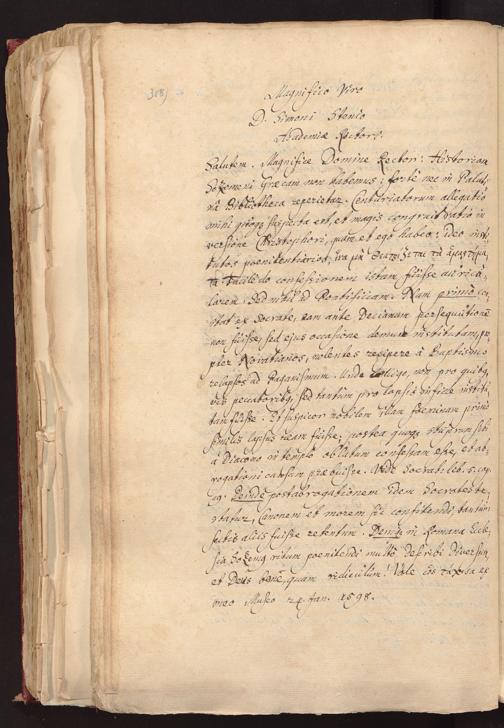 318)
Magnifico Viro
D. Simoni Stenio
Academiæ Rectori.
Salutem. Magnifice Domine Rector: Historiam
Sozomeni Græcam non habemus; forte nec in Palati-
na Bibliotheca reperietur. Centuriatorum allegatio
mihi quoque suspecta est, et magis congruit ratio in
versione Christophori, quam et ego habeo: ideo insti-
tutos poenitentiarios, ἵνα μὴ
confessionem istam fuisse auricu-
larem: sed nihil ad Pontificiam. Nam primo con-
stat ex Socrate, eam ante Decianam persequutionem
non fuisse, sed ejus occasione demum institutam, pro-
pter Novatianos, nolentes recipere à Baptismo
relapsos ad Paganismum. Unde colligo, non pro quibus-
vis peccatoribus, sed tantum pro lapsis in fide institu-
tam fuisse. Et suspicor nobilem illam foeminam primo
similis lapsus ream fuisse; postea quoque stuprum sibi
à Diacono in templo oblatum confessam esse, et ab-
rogationi causam præbuisse. Vide Socratem lib. 5. cap.
19. Deinde post abrogationem idem Socrates te-
statur, Canonem et morem sic confitendi, tantum
sectis aliis fuisse retentum. Denique in Romana Eccle-
sia Sozomenus ritum poenitendi multo describit diversum,
et Deus bone, quam ridiculum! Vale ex
meo Museo 24 Jan. 1598.